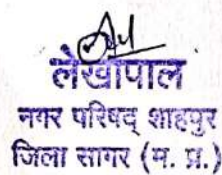 लेखापाल
नगर परिषद् शाहपुर
जिला सागर (म. प्र.)